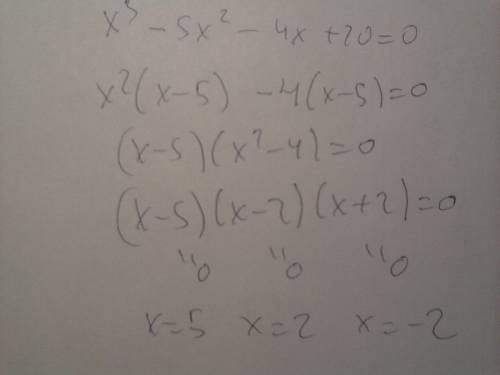 x³ - 5x² - 4x + 20 = 0
x²(x-5) - 4(x-5) = 0
(x-5)(x²-4) = 0
(x-5)(x-2)(x+2) = 0
"0 "0 "0
x=5 x=2 x=-2